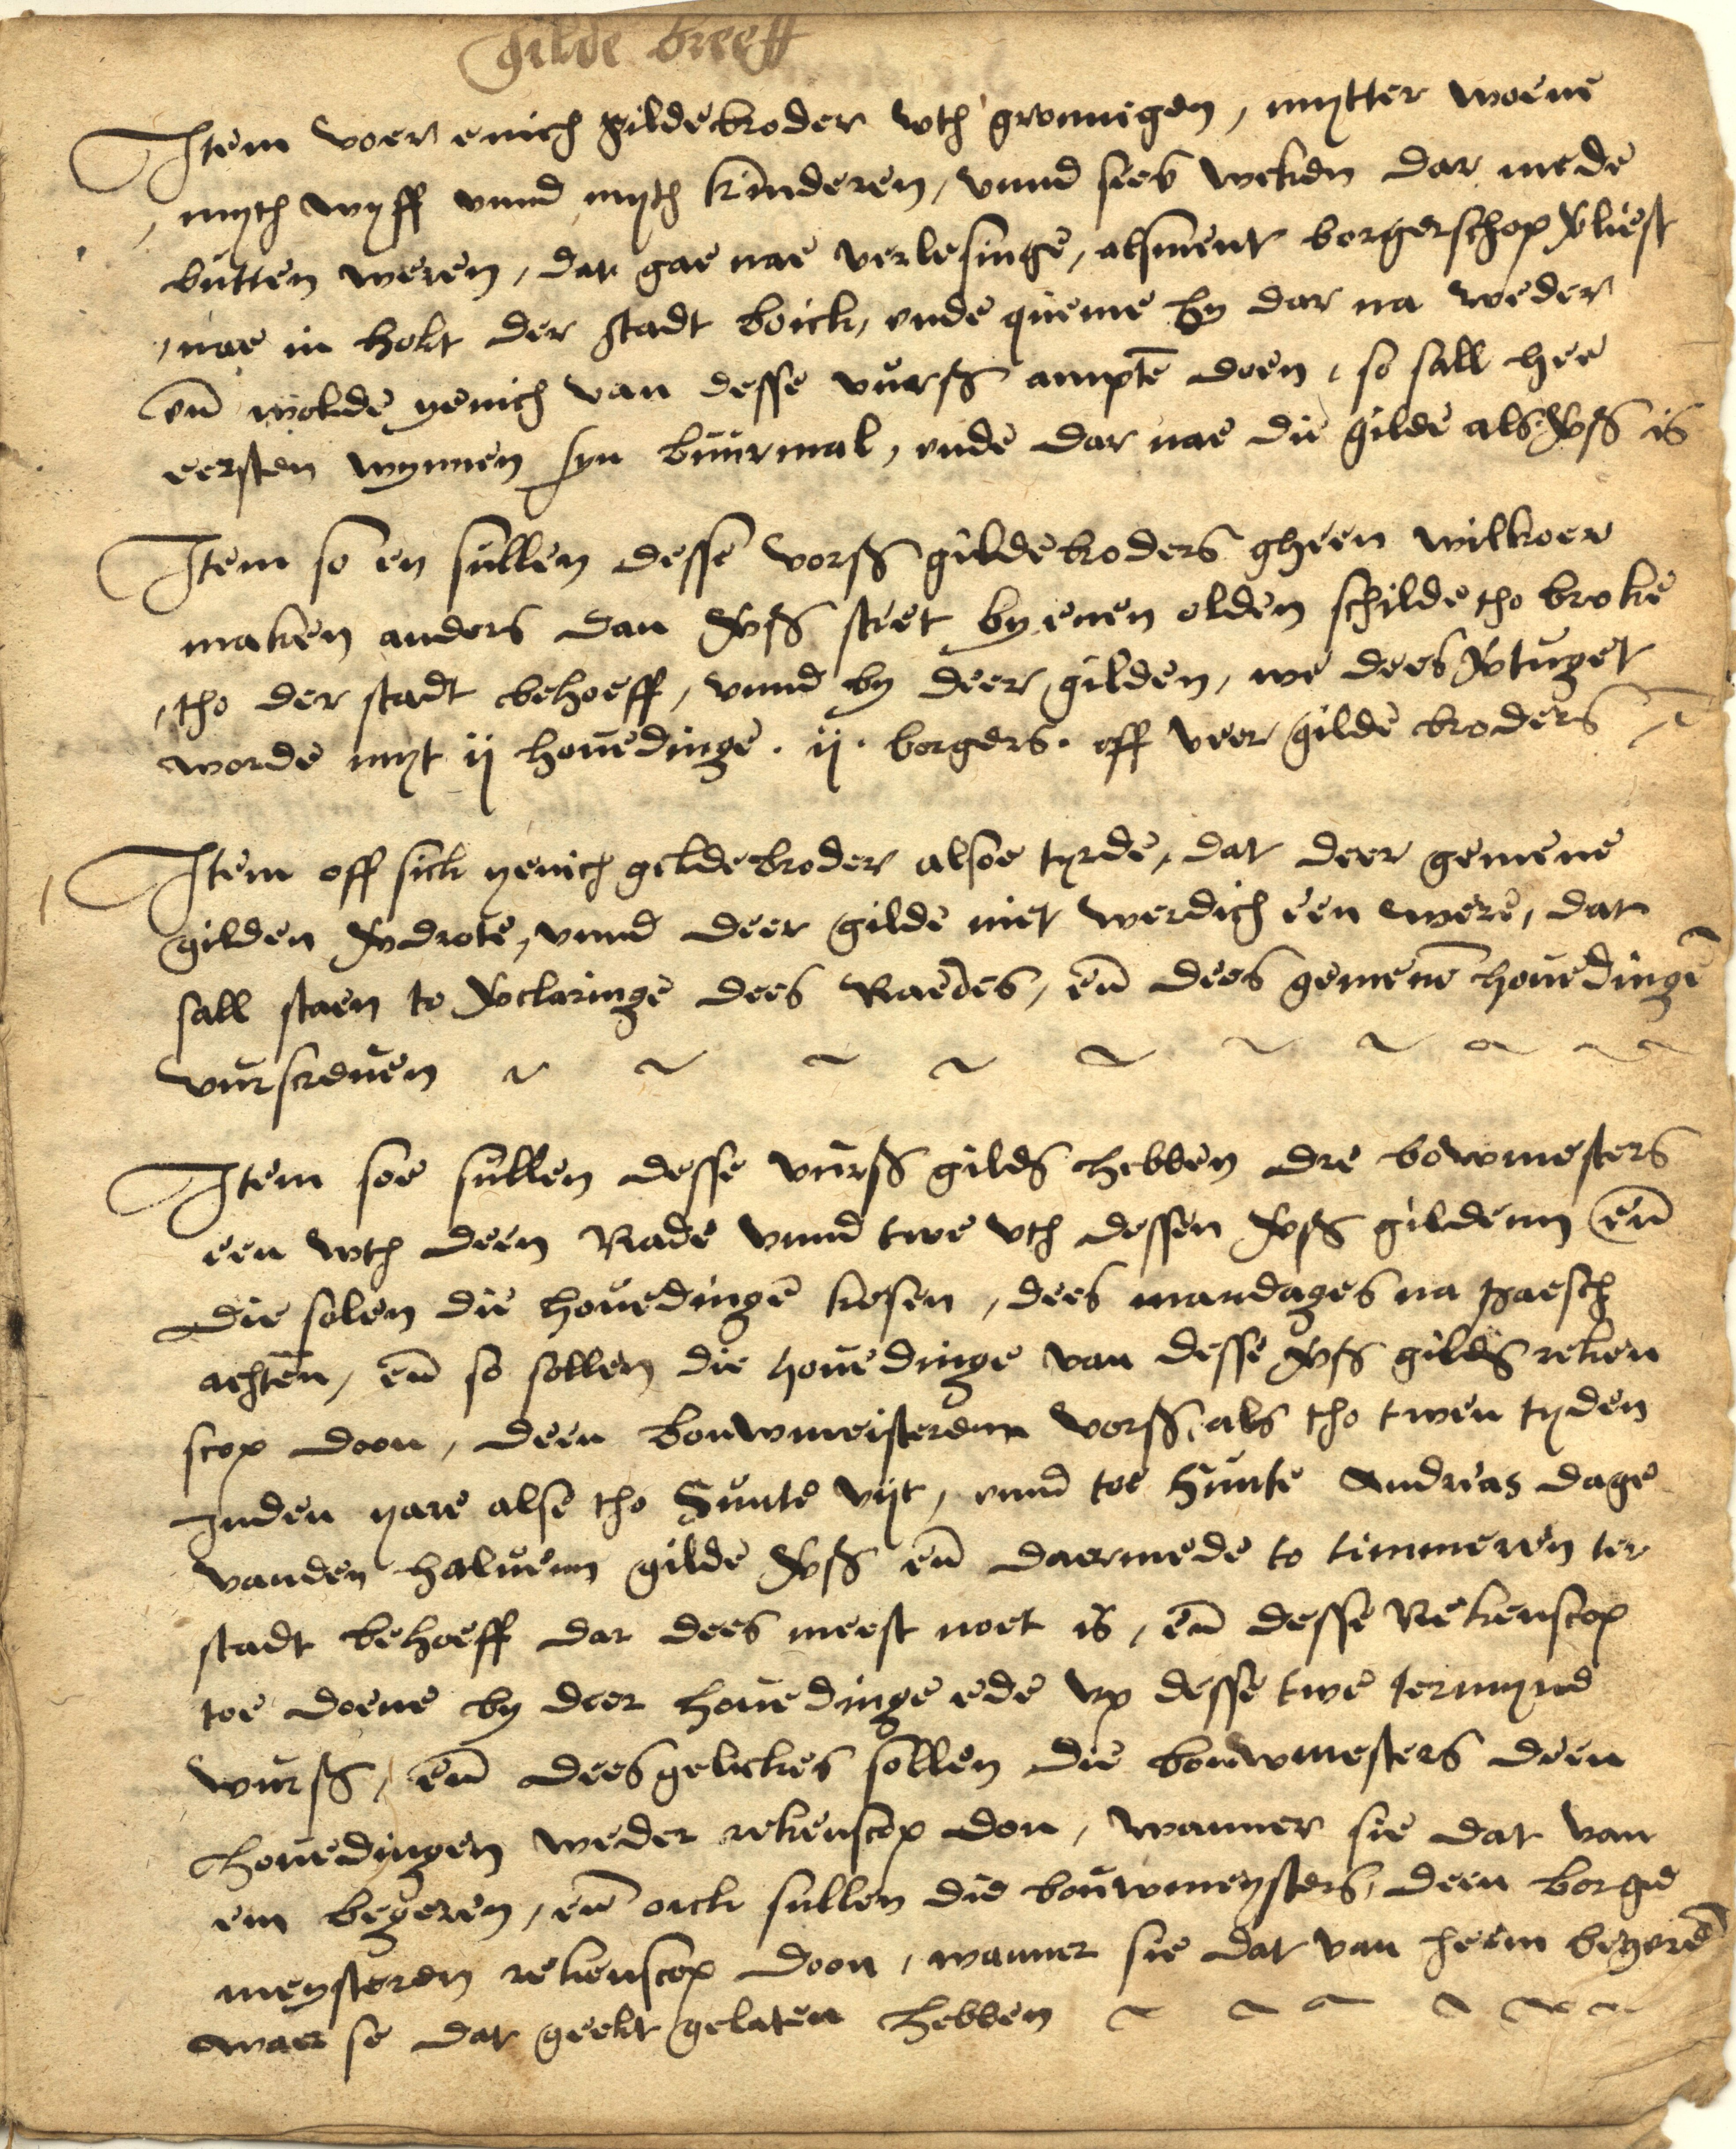 Gilde breeff
Item voer enich gildebroder wth gronnigen, mytter woene
myth wyff vnnd myth kinderen, vnnd sees weken dar mede
butten weren, dat gae nae verlesinge, alsment borgerschop vliest
nae in holt der stadt boick, vnde queme hy dar na weder
en̄ wolde yenich van desse vurß amptē doen, so sall hee
eersten wynnen syn buurmal, vnde dar nae die gilde als vß is
Item so en sullen desse vorß gildebroders gheen wilkoer
maken anders dan vß steet by enen olden schilde tho broke
tho der stadt behoeff, vnnd by deer gilden, we dees vtuget
worde myt ij houedinge . ij . borgers . off veer gilde broders
Item off sick yenich gildebroder alsoe tyrde, dat deer gemene
gilden vdrote, vnnd deer gilde niet werdich een were, dat
sall staen to vclaringe dees Raedes, en̄ dees gemenē houedingē
vurscreuen
Item soe sullen desse vurß gildß hebben dre bowmesters
een wth deen Rade vnnd twe vth dessen vß gildenn en̄
die solen die houedingē kesen, dees mandages na paesch
achten, en̄ so sollen die houedinge van desse vß gildß reken
scop doon, deen bouwmeisterenn vorß, als tho twen tyden
Inden yare alse tho Sunte vijt, vnnd toe Sunte Andreas dage
vanden haluenn gilde vß en̄ daermede to timmeren ter
stadt behoeff dar dees meest noet is, en̄ desse Rekenscop
toe doene by deer houedinge ede vp desse twe termynd
wurß, en̄ deesgelickes sollen die bouwmesters deen
houedingen weder rekenscop don, wanner sie dat van
em begeren, en̄ oick sullen die bouwmeysters, deen borge
meysteren rekenscop doon, wanner sie dat van heem begerē
waer se dat geelt gelaten hebben